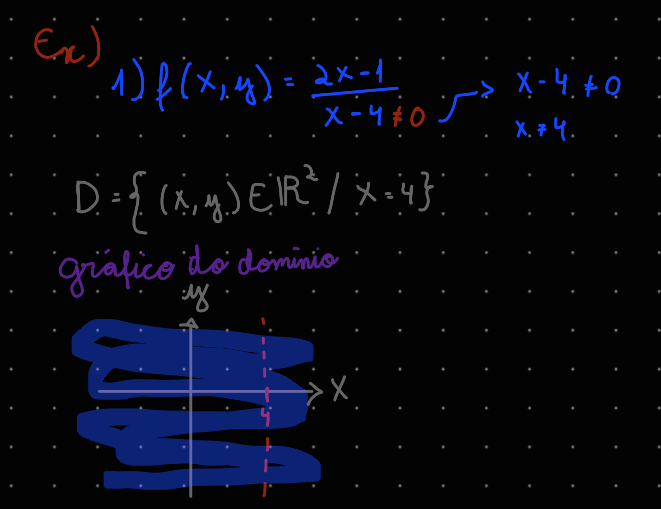 Ex)
1) f(x, y) = 2x - 1 / x - 4 ≠ 0 → x - 4 ≠ 0
x ≠ 4
D = { (x, y) ∈ ℝ² / x = 4 }
gráfico do domínio
y
x
4